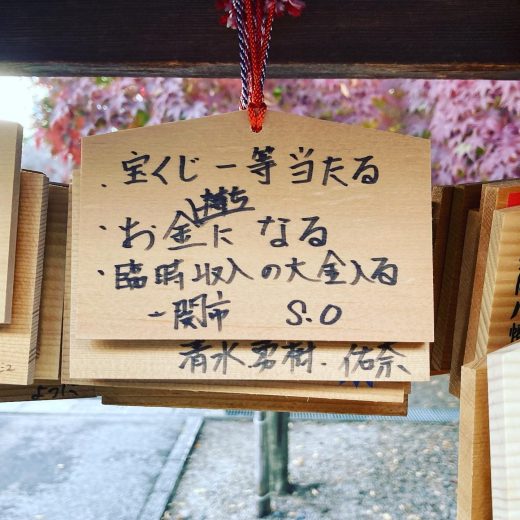 ・宝くじ一等当たる
・お金持ちになる
・臨時収入の大金入る
一関市 S.O
清水勇樹.佑奈
ように